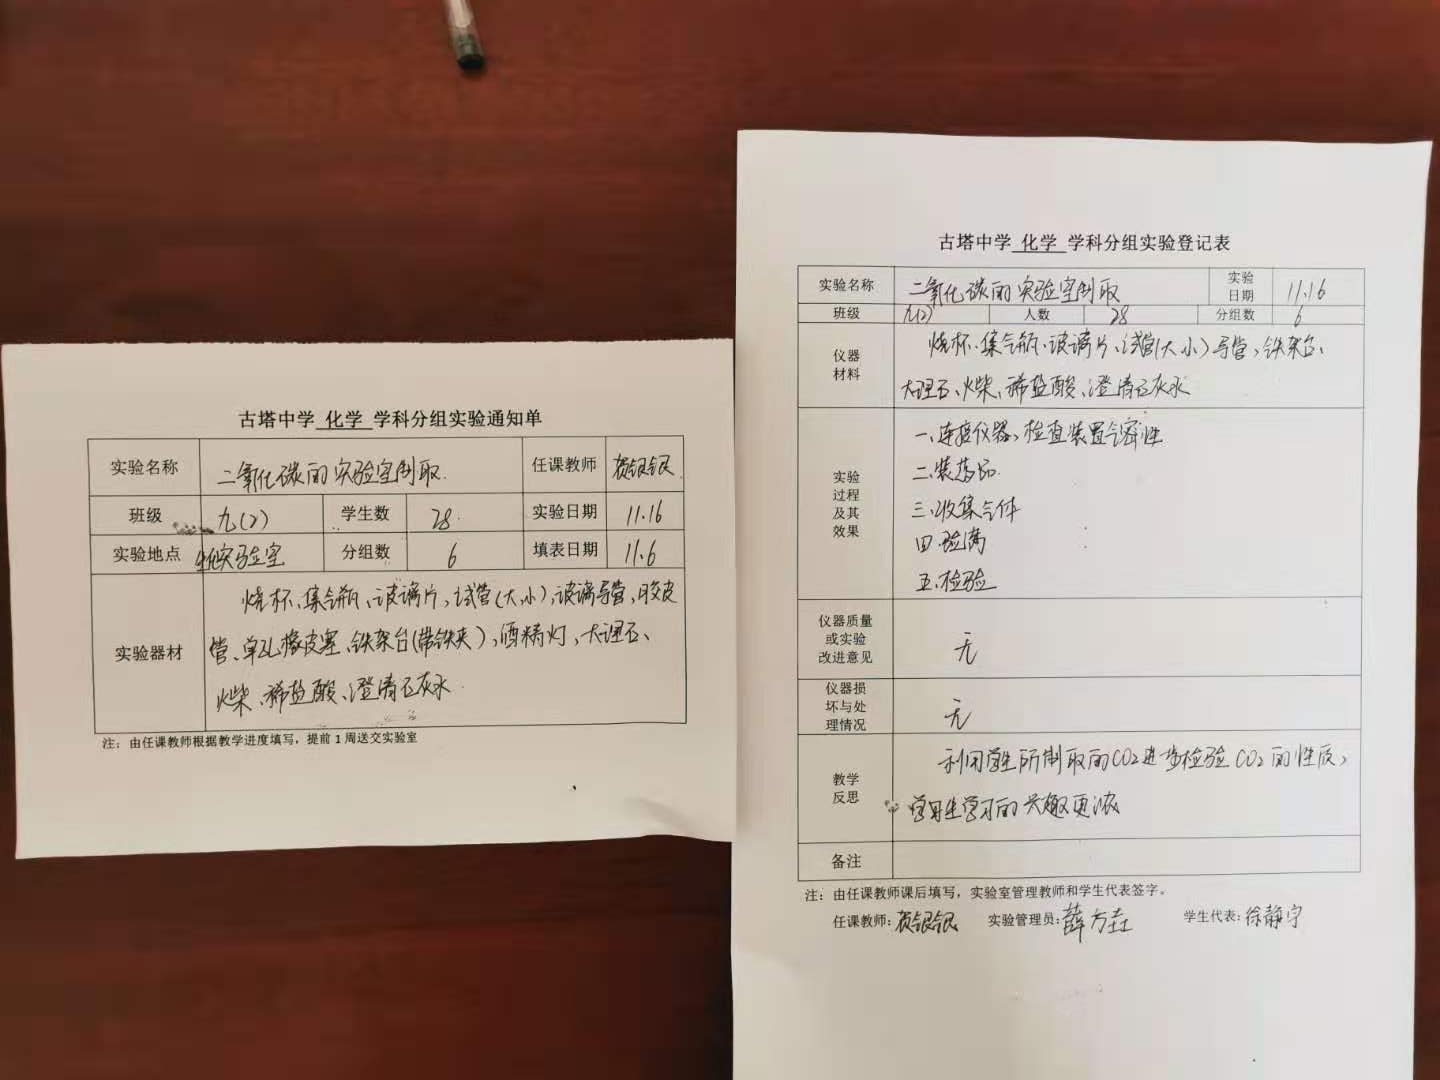 古塔中学 化学 学科分组实验通知单
实验名称 二氧化碳的实验室制取 任课教师 贺银银
班级 九(2) 学生数 28 实验日期 11.16
实验地点 实验室 分组数 6 填表日期 11.6
实验器材
烧杯、集气瓶、玻璃片、试管(大、小)、玻璃导管、胶皮
管、单孔橡皮塞、铁架台(带铁夹)、酒精灯、大理石、
火柴、稀盐酸、澄清石灰水
注：由任课教师根据教学进度填写，提前1周送交实验室
古塔中学 化学 学科分组实验登记表
实验名称 二氧化碳的实验室制取 实验日期 11.16
班级 九(2) 人数 28 分组数 6
仪器材料
烧杯、集气瓶、玻璃片、试管(大、小)导管、铁架台、
大理石、火柴、稀盐酸、澄清石灰水
实验过程及其效果
一、连接仪器、检查装置气密性
二、装药品
三、收集气体
四、验满
五、检验
仪器质量或实验改进意见 无
仪器损坏与处理情况 无
教学反思
利用学生所制取的CO2进步检验CO2的性质,
生学习的兴趣更浓
备注
注：由任课教师课后填写，实验室管理教师和学生代表签字。
任课教师: 贺银银 实验管理员: 薛方 学生代表: 徐静宇